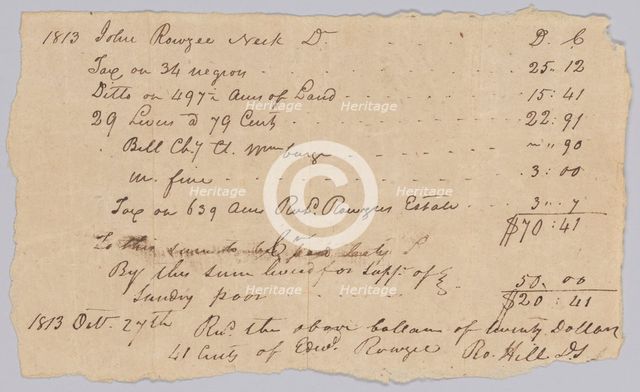 1813 John Rowzee Neck Dr. D. C
Tax on 34 negroes 25 .. 12
Ditto on 497 Acres of Land 15 : 41
29 Levies @ 79 Cents 22 : 91
Bell Chy Ct. " 90
m. fine 3 : 00
Tax on 639 Acres Robt. Rowzees Estate 3 .. 7
$70 : 41
To this sum to be
By this sum levied for Suppt. of 50 .. 00
Sundry poor $20 : 41
1813 Oct. 27th Recd. the above ballance of twenty Dollars
41 Cents of Edwd. Rowzee Ro. Hill DS
heritage images
Heritage
Heritage
Heritage
Heritage
Heritage
Heritage
Heritage
Heritage
C